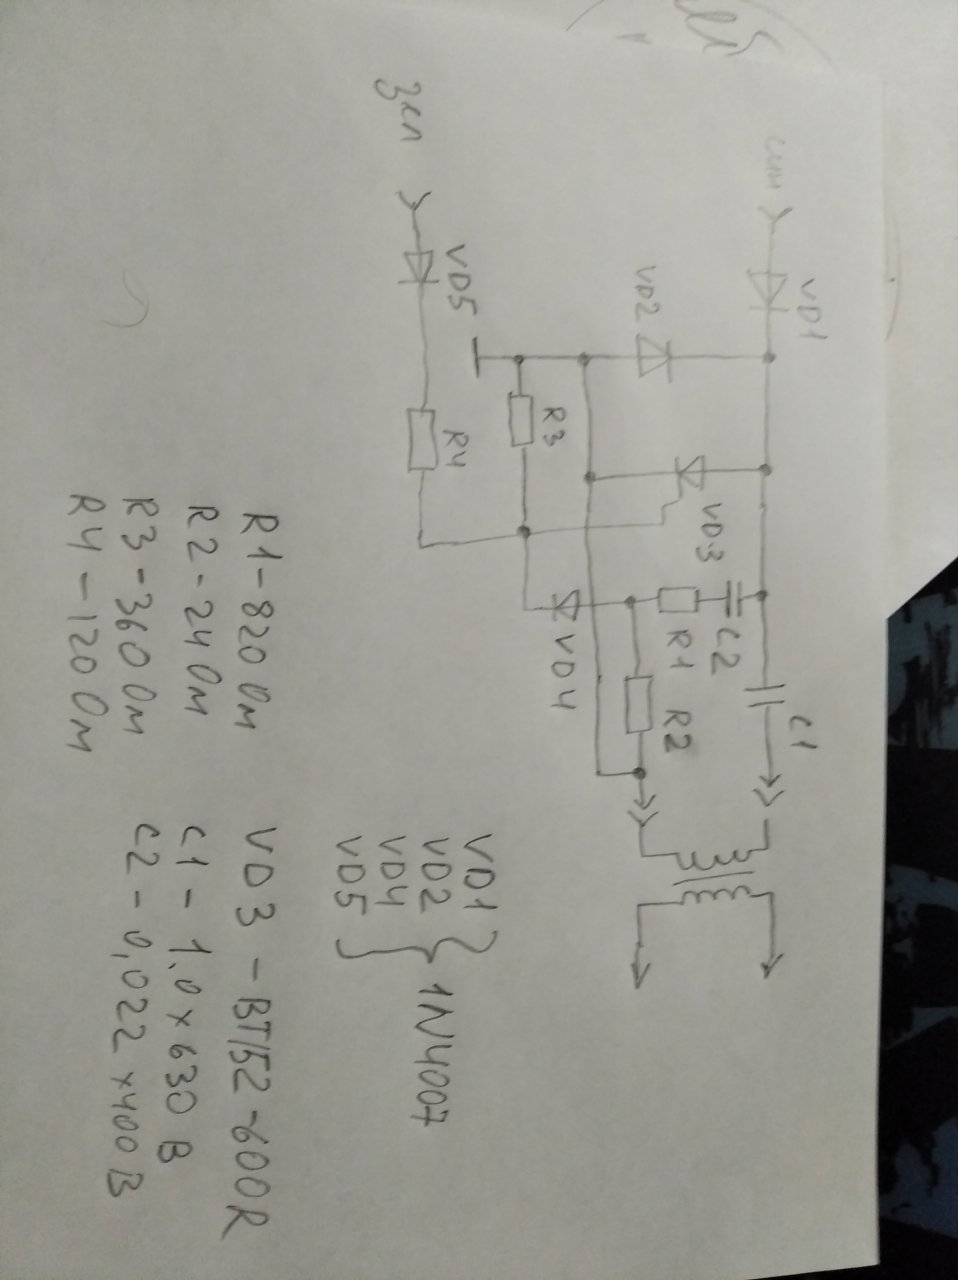 VD1
C1
син
VD2
VD3
C2
R1
R2
VD4
R3
VD5
R4
зел
VD1
VD2
VD4
VD5
1N4007
R1-820 Ом
R2-24 Ом
R3-360 Ом
R4-120 Ом
VD3 - BT152-600R
C1 - 1,0 x 630 В
C2 - 0,022 x 400 В